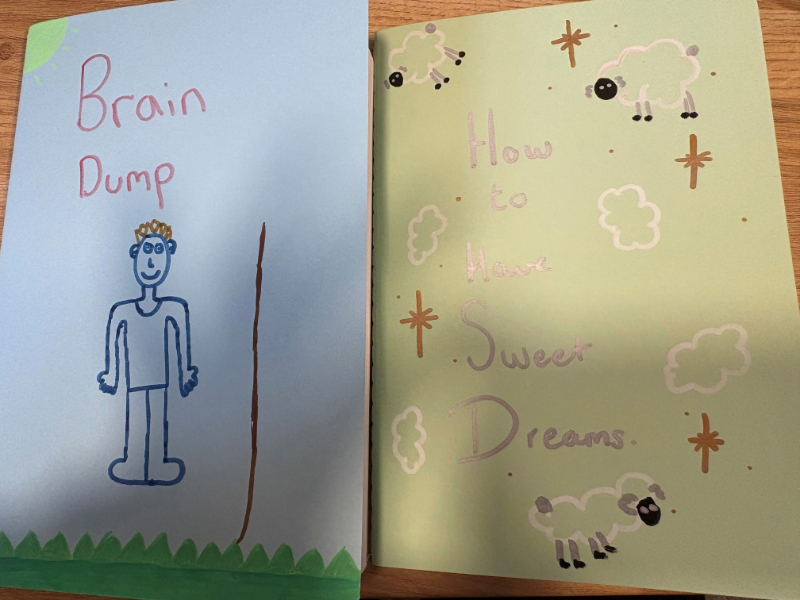 Brain
Dump
How
to
Have
Sweet
Dreams.